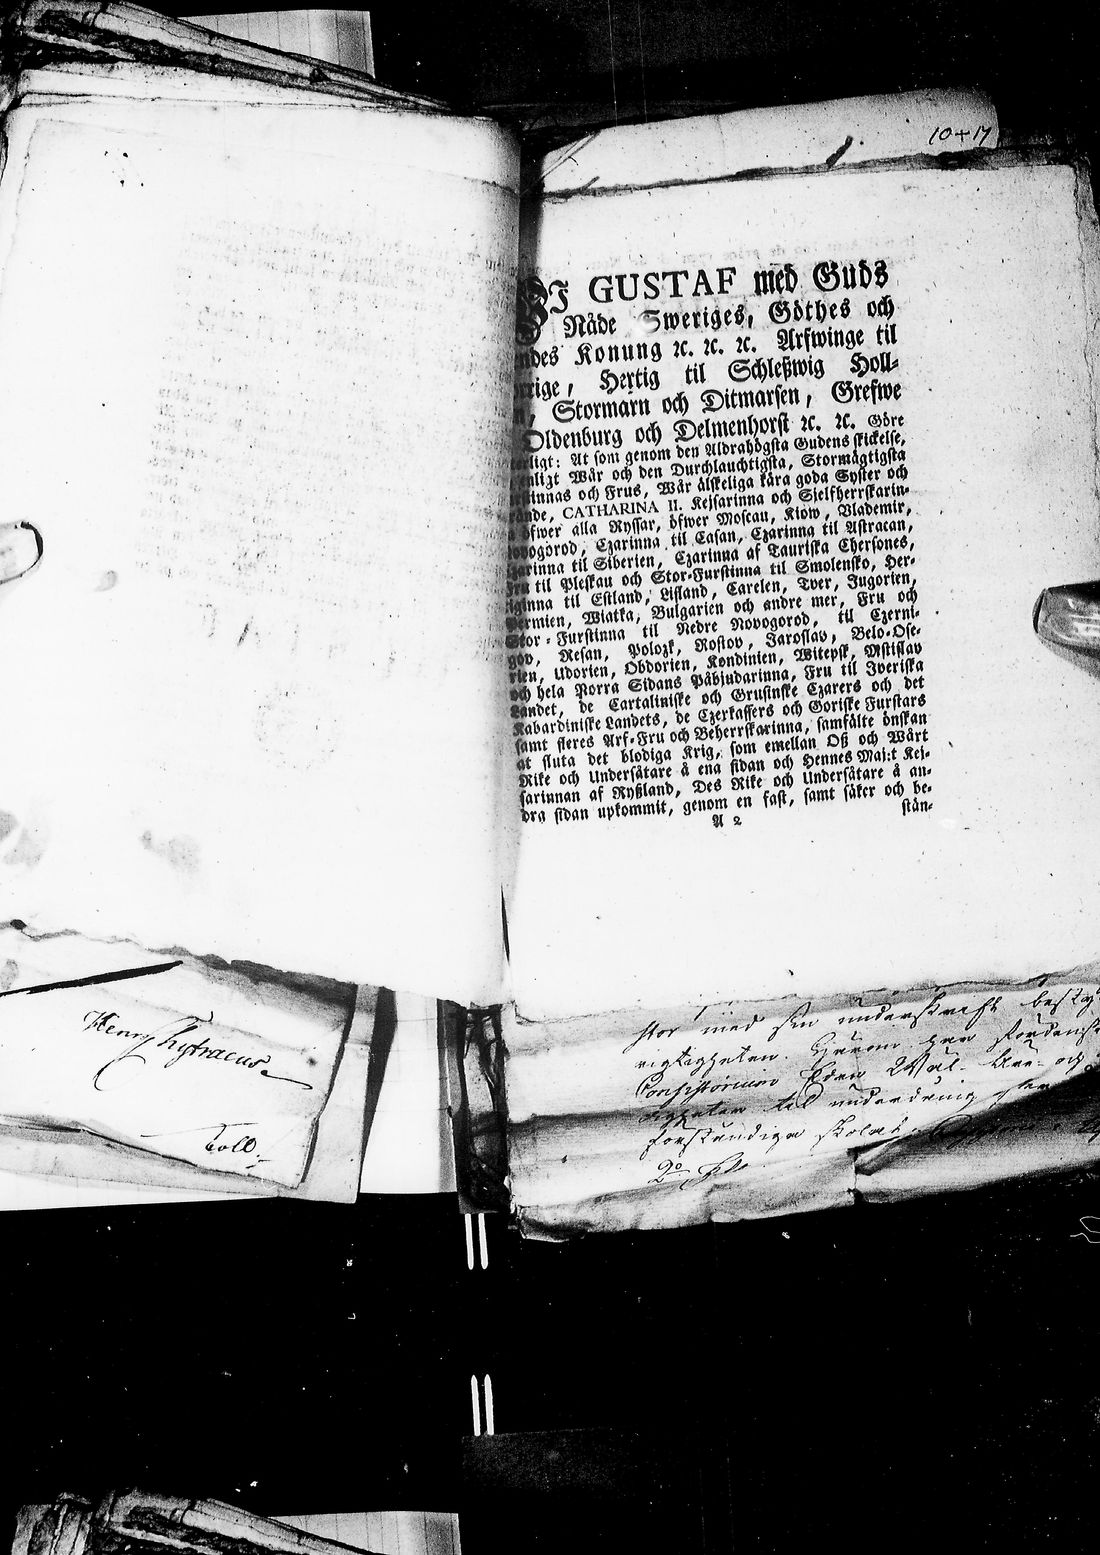 10+17
WJ GUSTAF med Guds
Nåde Sweriges, Göthes och
ndes Konung ꝛc. ꝛc. ꝛc. Arfwinge til
rrige, Hertig til Schleßwig Holl-
n, Stormarn och Ditmarsen, Grefwe
Oldenburg och Delmenhorst ꝛc. ꝛc. Göre
terligt: At som genom den Aldrahögsta Gudens skickelse,
enligt Wår och den Durchlauchtigsta, Stormägtigsta
rstinnas och Frus, Wår älskeliga kära goda Syster och
rände, CATHARINA II. Kejsarinna och Sjelfherrskarin-
öfwer alla Ryssar, öfwer Moscau, Kiow, Vlademir,
ovogorod, Czarinna til Casan, Czarinna til Astracan,
zarinna til Siberien, Czarinna af Tauriska Chersones,
Fru til Pleskau och Stor-Furstinna til Smolensko, Her-
iginna til Estland, Lifland, Carelen, Tver, Jugorien,
Permien, Wiatka, Bulgarien och andre mer, Fru och
Stor-Furstinna til Nedre Novogorod, til Czerni-
gov, Resan, Polozk, Rostov, Jaroslav, Belo-Ose-
rien, Udorien, Obdorien, Kondinien, Witepsk, Mstislav
och hela Norra Sidans Påbjudarinna, Fru til Iveriska
Landet, de Cartaliniske och Grusinske Czarers och det
Kabardiniske Landets, de Czerkassers och Goriske Furstars
samt fleres Arf-Fru och Beherrskarinna, samfälte önskan
at sluta det blodiga Krig, som emellan Oß och Wårt
Rike och Undersåtare å ena sidan och Hennes Maj:t Kej-
sarinnan af Ryßland, Des Rike och Undersåtare å an-
dra sidan upkommit, genom en fast, samt säker och be-
stän-
A 2
Henr Chytraeus
Toll.
stor med sin underskrift
Consistorium
til underdånig